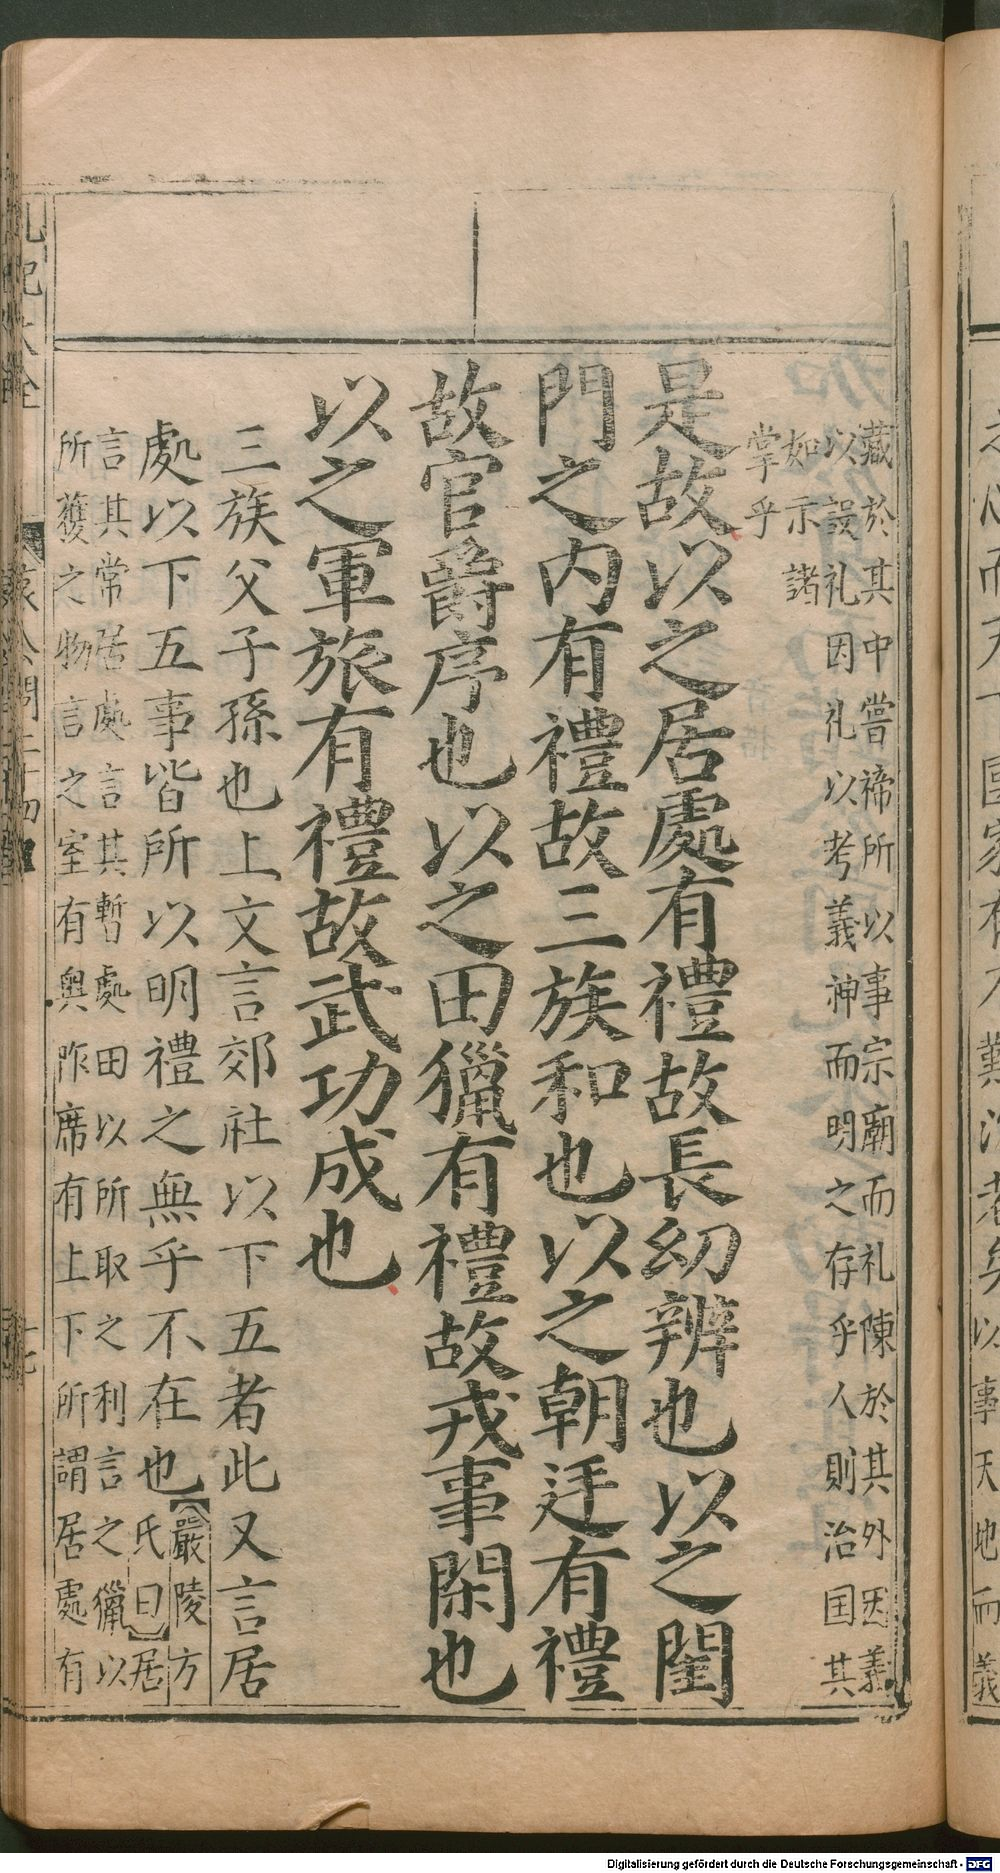 藏於其中嘗禘所以事宗廟而礼陳於其外因義
以設礼因礼以考義神而明之存乎人則治国其
如示諸
掌乎
是故以之居處有禮故長幼辨也以之閨
門之内有禮故三族和也以之朝廷有禮
故官爵序也以之田獵有禮故戎事閑也
以之軍旅有禮故武功成也
三族父子孫也上文言郊社以下五者此又言居
處以下五事皆所以明禮之無乎不在也
【嚴陵方
氏曰】居
言其常居處言其暫處田以所取之利言之獵以
所獲之物言之室有奥阼席有上下所謂居處有
礼記大全
Digitalisierung gefördert durch die Deutsche Forschungsgemeinschaft - DFG